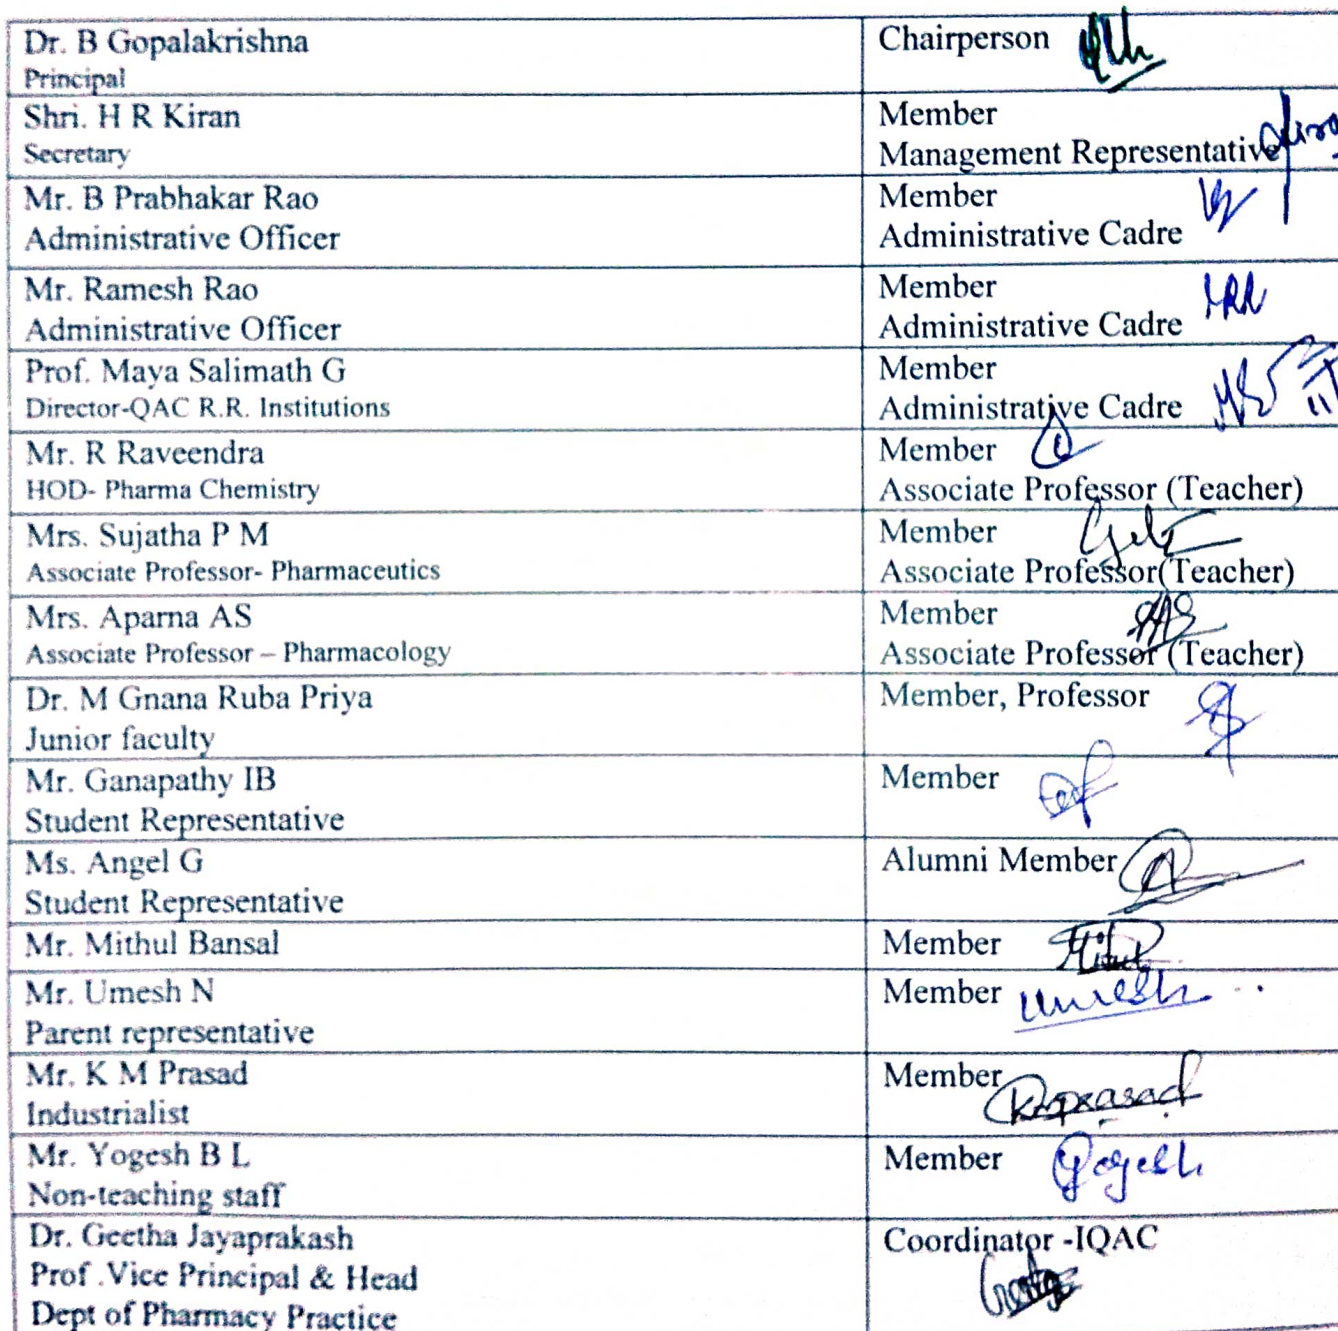 Dr. B Gopalakrishna
Principal
Chairperson
Shri. H R Kiran
Secretary
Member
Management Representative
Mr. B Prabhakar Rao
Administrative Officer
Member
Administrative Cadre
Mr. Ramesh Rao
Administrative Officer
Member
Administrative Cadre
Prof. Maya Salimath G
Director-QAC R.R. Institutions
Member
Administrative Cadre
Mr. R Raveendra
HOD- Pharma Chemistry
Member
Associate Professor (Teacher)
Mrs. Sujatha P M
Associate Professor- Pharmaceutics
Member
Associate Professor(Teacher)
Mrs. Aparna AS
Associate Professor – Pharmacology
Member
Associate Professor (Teacher)
Dr. M Gnana Ruba Priya
Junior faculty
Member, Professor
Mr. Ganapathy IB
Student Representative
Member
Ms. Angel G
Student Representative
Alumni Member
Mr. Mithul Bansal
Member
Mr. Umesh N
Parent representative
Member
Umesh
Mr. K M Prasad
Industrialist
Member
Kmprasad
Mr. Yogesh B L
Non-teaching staff
Member
Yogesh
Dr. Geetha Jayaprakash
Prof .Vice Principal & Head
Dept of Pharmacy Practice
Coordinator -IQAC